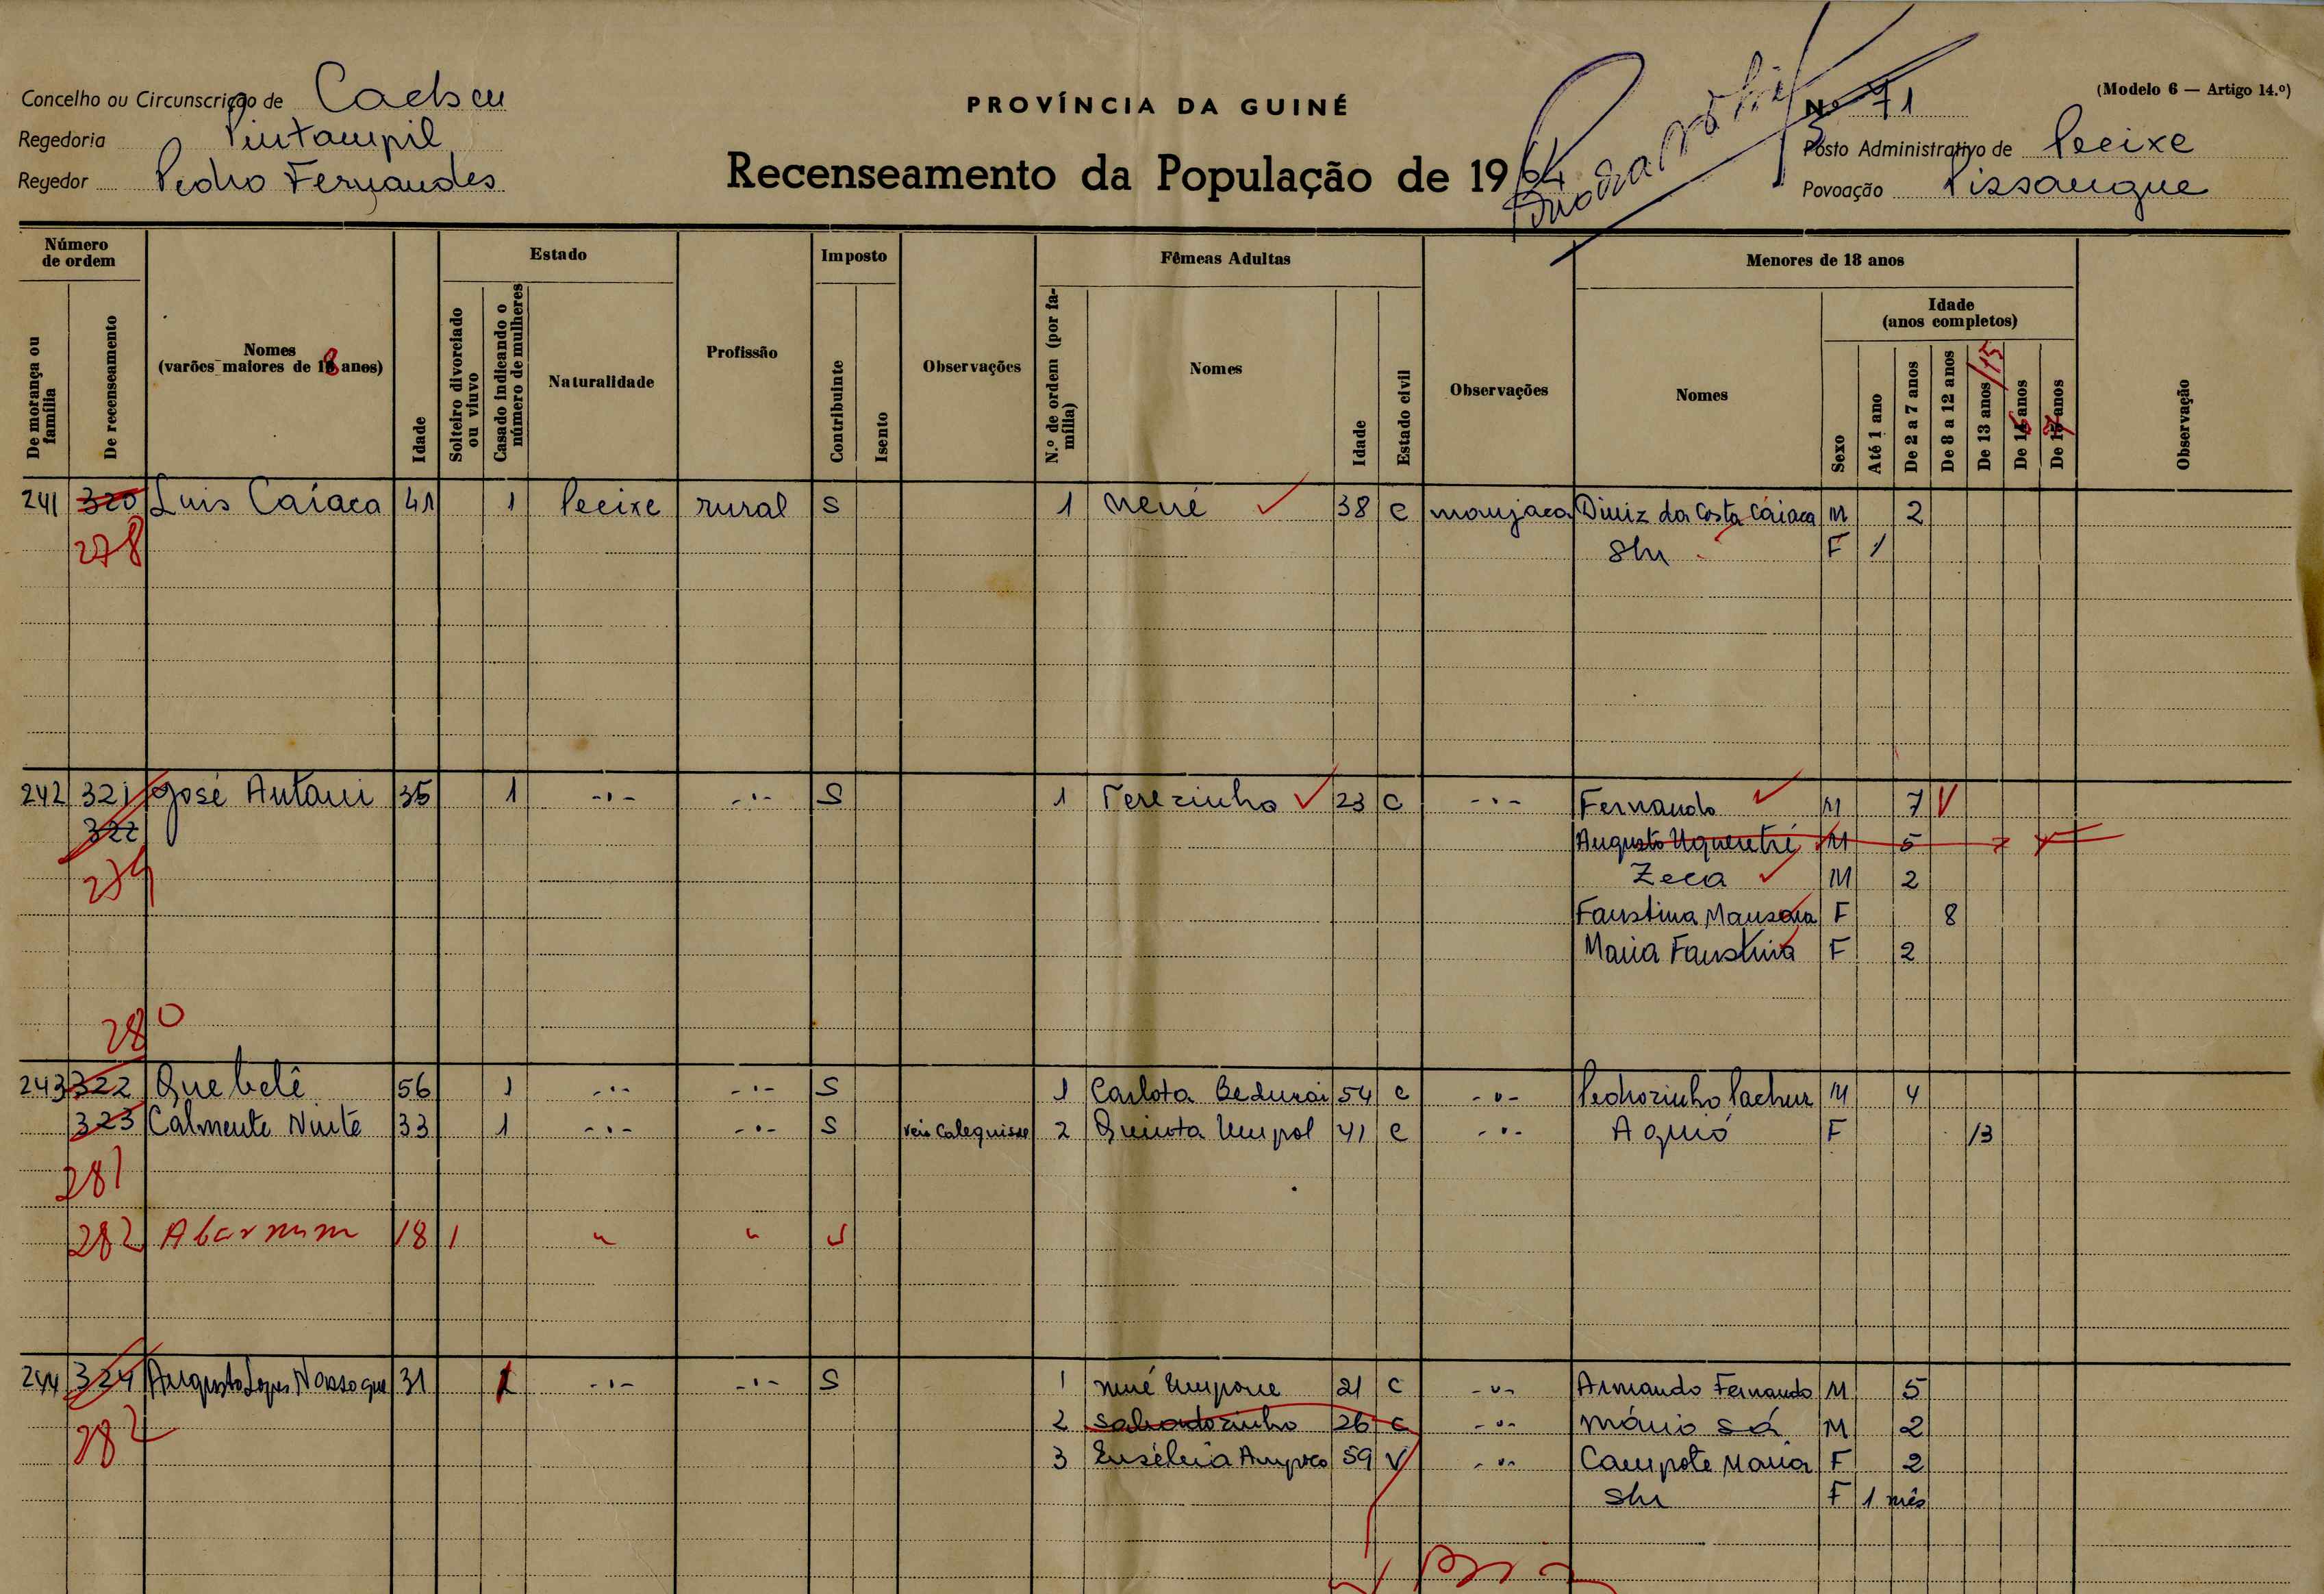 Concelho ou Circunscrição de Cacheu
Regedoria Pintampil
Regedor Pedro Fernandes
PROVÍNCIA DA GUINÉ
Recenseamento da População de 1964
(Modelo 6 — Artigo 14.º)
Nº 71
Posto Administrativo de Pecixe
Povoação Pissangue
Número de ordem
De morança ou família
De recenseamento
Nomes
(varões maiores de 18 anos)
Idade
Estado
Solteiro divorciado ou viuvo
Casado indicando o número de mulheres
Naturalidade
Profissão
Imposto
Contribuinte
Isento
Observações
Fêmeas Adultas
N.º de ordem (por família)
Nomes
Idade
Estado civil
Observações
Menores de 18 anos
Nomes
Sexo
Idade
(anos completos)
Até 1 ano
De 2 a 7 anos
De 8 a 12 anos
De 13 anos /15
De 16 anos
De 17 anos
Observação
241 320 Luis Caiaca 41 1 Pecixe rural S 1 Nené 38 C manjaca Diniz da Costa Caiaca M 2
278 S/n F 1
242 321 José Antoni 35 1 -·- -·- S 1 Terezinha 23 C -·- Fernando M 7
322 Augusto M 5
279 Zeca M 2
Faustina F 8
Maria Faustina F 2
280
243 322 Quebelê 56 1 -·- -·- S 1 Carlota 54 C -·- Pedrozinho M 4
323 Calmente 33 1 -·- -·- S Veio Calequisse 2 Quinta 41 C -·- F 13
281
282 18 1 " " S
244 324 Augusto Lopes 31 1 -·- -·- S 1 Nené 21 C -·- Armando Fernando M 5
282 2 26 C -·- Mário Sá M 2
3 59 V -·- Campote Maria F 2
S/n F 1 mês